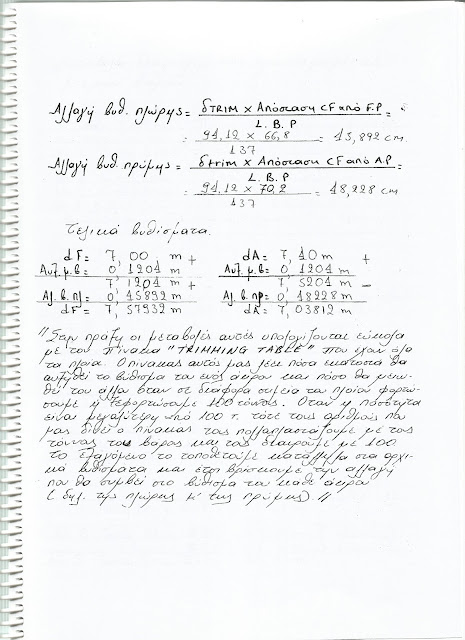 Αλλαγή βυθ. πλώρης = δTRIM x Απόσταση CF από F.P =
L. B. P
= 94,12 x 66,8 = 45,892 cm
137
Αλλαγή βυθ. πρύμης = δtrim x Απόσταση CF από A.P =
L. B. P
= 94,12 x 70,2 = 48,228 cm
137
Τελικά βυθίσματα.
dF = 7, 00, m + dA = 7, 40 m +
Αυξ. μ. β = 0, 1204 m Αυξ. μ. β = 0, 1204 m
7, 1204 + 7, 5204 m -
Αλ. β. πλ = 0, 45892 m Αλ. β. πρ = 0, 48228 m
dF' = 7, 57932 m dA' = 7, 03812 m
// Στην πράξη οι μεταβολές αυτές υπολογίζονται εύκολα
με τον πίνακα "TRIMMING TABLE" που έχουν όλα
τα πλοία. Ο πίνακας αυτός μας λέει πόσα εκατοστά θα
αυξηθεί το βύθισμα του ενός άκρου και πόσο θα μειω-
θεί του άλλου όταν σε διάφορα σημεία του πλοίου φορτώ-
σουμε ή ξεφορτώσουμε 100 τόνους. Όταν η ποσότητα
είναι μεγαλύτερη από 100 τ. τότε τους αριθμούς που
μας δίνει ο πίνακας τους πολλαπλασιάζουμε με τους
τόνους του βάρους και τους διαιρούμε με 100
το εξαγόμενο το τοποθετούμε κατάλληλα στα αρχι-
κά βυθίσματα και έτσι βρίσκουμε την αλλαγή
που θα συμβεί στο βύθισμα του κάθε άκρου
( δηλ. της πλώρης κ' της πρύμης). //